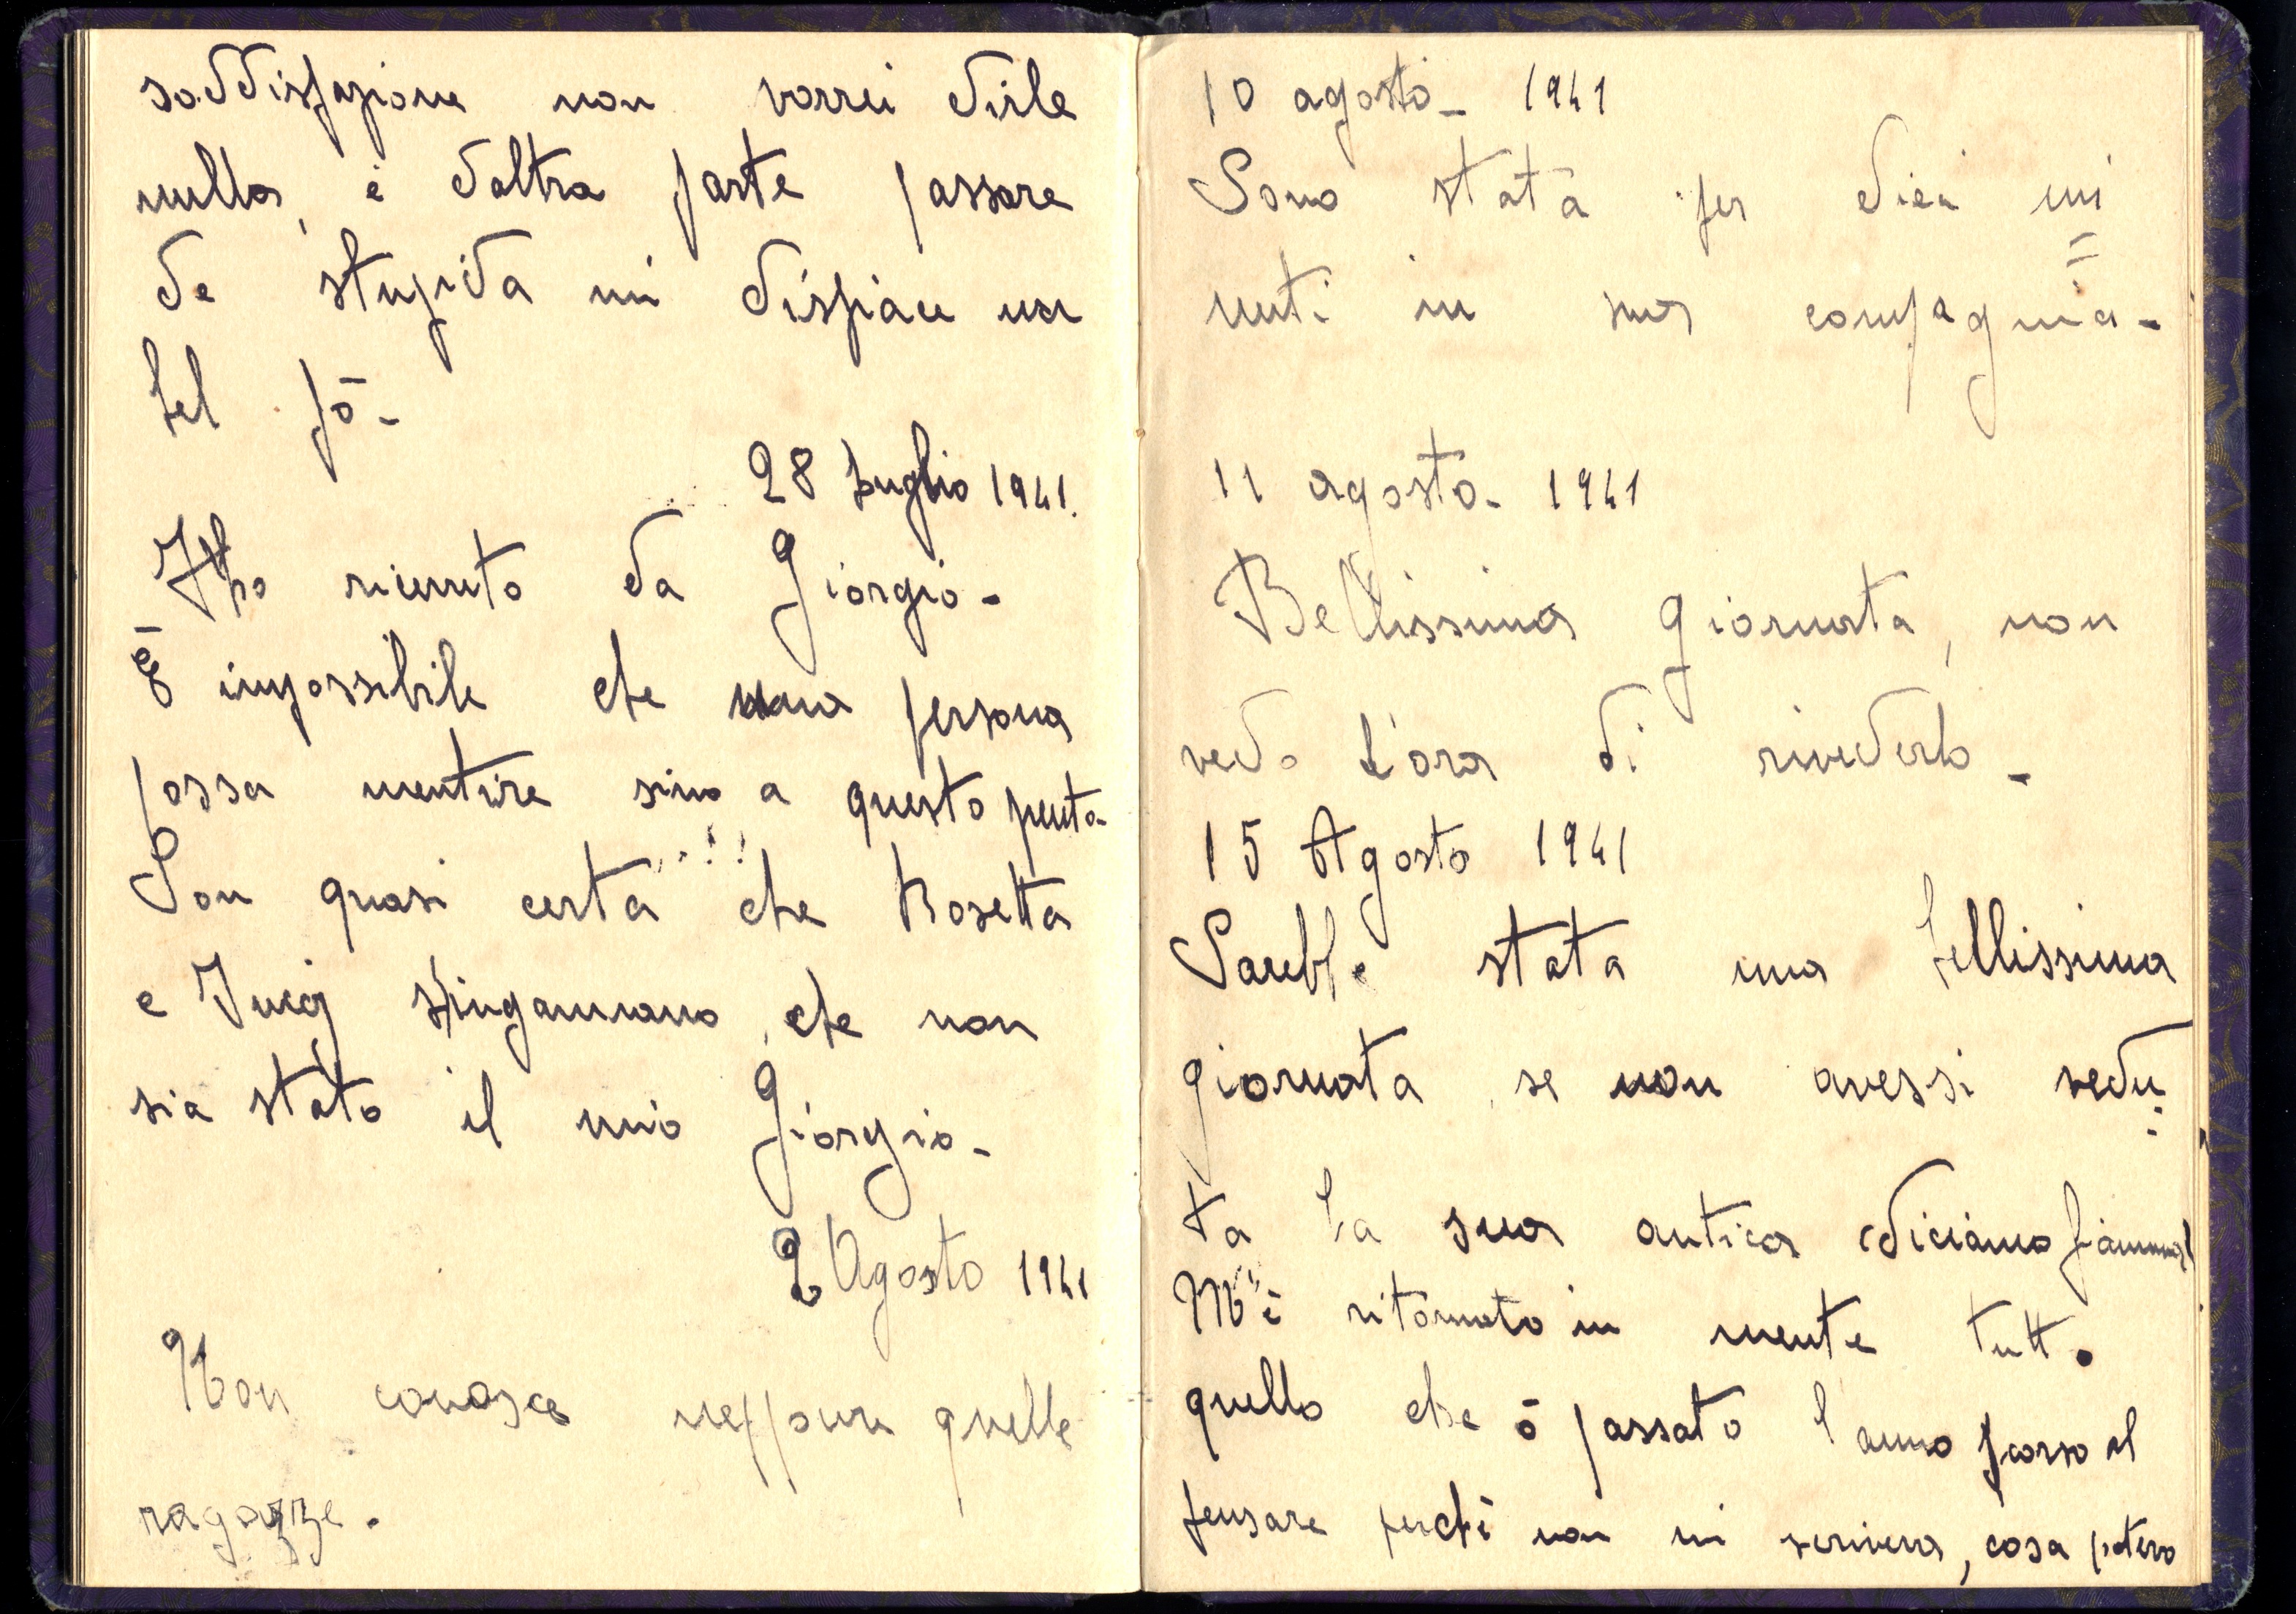 soddisfazione non vorrei dirle
nulla, e d'altra parte passare
da stupida mi dispiace un
bel pò-
28 Luglio 1941.
Ho ricevuto da Giorgio-
È impossibile che una persona
possa mentire sino a questo punto-
Son quasi certa che Rosetta
e Luigi s'ingannano, che non
sia stato il mio Giorgio-
2 Agosto 1941
Non conosce neppure quelle
ragazze.
10 agosto- 1941
Sono stata per dieci mi=
nuti in sua compagnia-
11 agosto- 1941
Bellissima giornata, non
vedo l'ora di rivederlo-
15 Agosto 1941
Sarebbe stata una bellissima
giornata, se non avessi vedu=
ta la sua antica diciamo fiamma!
M'è ritornato in mente tutto
quello che ò passato l'anno scorso al
pensare perchè non mi scriveva, cosa potevo